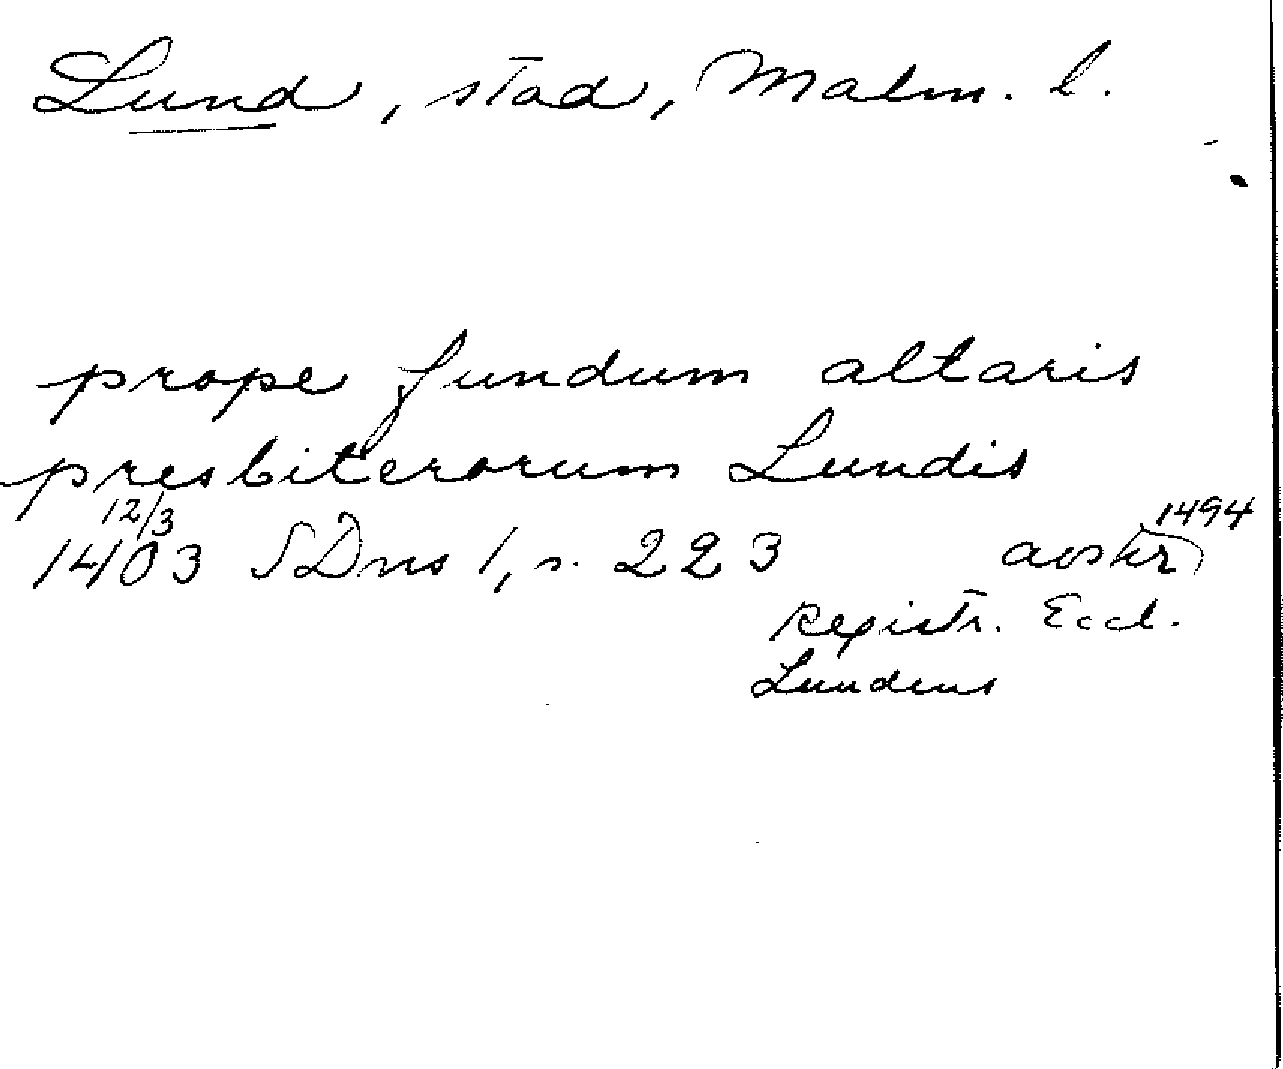 Lund, stad, Malm. l.
prope fundum altaris
presbiterorum Lundis
12/3
1403 SDns 1, s. 223 avskr 1494
Registr. Eccl.
Lundens